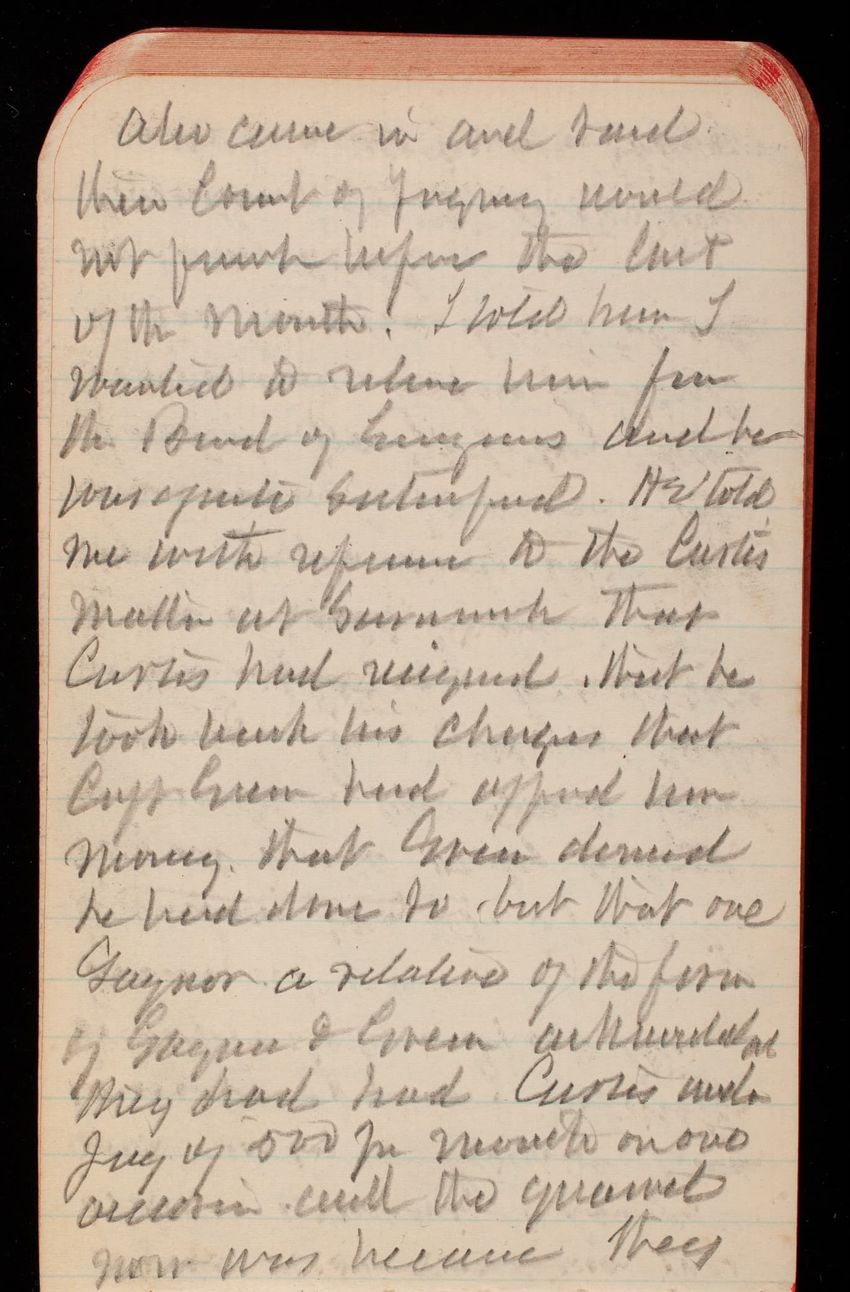 also came in and said
their Court of Inquiry would
not finish before the last
of the month. I told him I
wanted to relieve him from
the Board of Engineers and he
was quite satisfied. He told
me with reference to the Curtis
matter at Savannah that
Curtis had resigned. that he
took back his charges that
Capt Green had offered him
money. that Green denied
he had done so but that one
Gaynor a relative of the firm
of Gaynor & Green acknowledged
they had had Curtis under
pay of 500 per month on one
occasion and the quarrel
now was because they